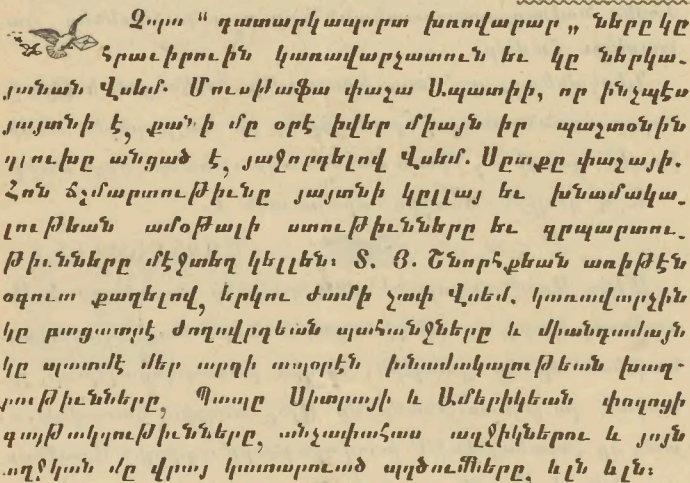 Չորս “ դատարկապորտ խռովարար „ ները կը
հրաւիրուին կառավարչատուն եւ կը ներկա-
յանան Վսեմ. Մուսթաֆա փաշա Ապատիի, որ ինչպէս
յայտնի է, քանի մը օրէ իվեր միայն իր պաշտօնին
գլուխը անցած է, յաջորդելով Վսեմ. Սըտքը փաշայի.
Հոն ճշմարտութիւնը յայտնի կըլլայ եւ խնամակա-
լութեան ամօթալի ստութիւնները եւ զրպարտու-
թիւնները մէջտեղ կելլեն։ Տ. Յ. Շնորհքեան առիթէն
օգուտ քաղելով, երկու ժամի չափ Վսեմ. կառավարչին
կը բացատրէ ժողովրդեան պահանջները և միանգամայն
կը պատմէ մեր արդի ապօրէն խնամակալութեան խաղ-
րութիւնները, Պապը Սիտրայի և Ամերիկեան փողոցի
գայթակղութիւնները, անչափահաս աղջիկներու և յոյն
աղջկան մը վրայ կատարուած պղծութիւնները, ևլն ևլն։